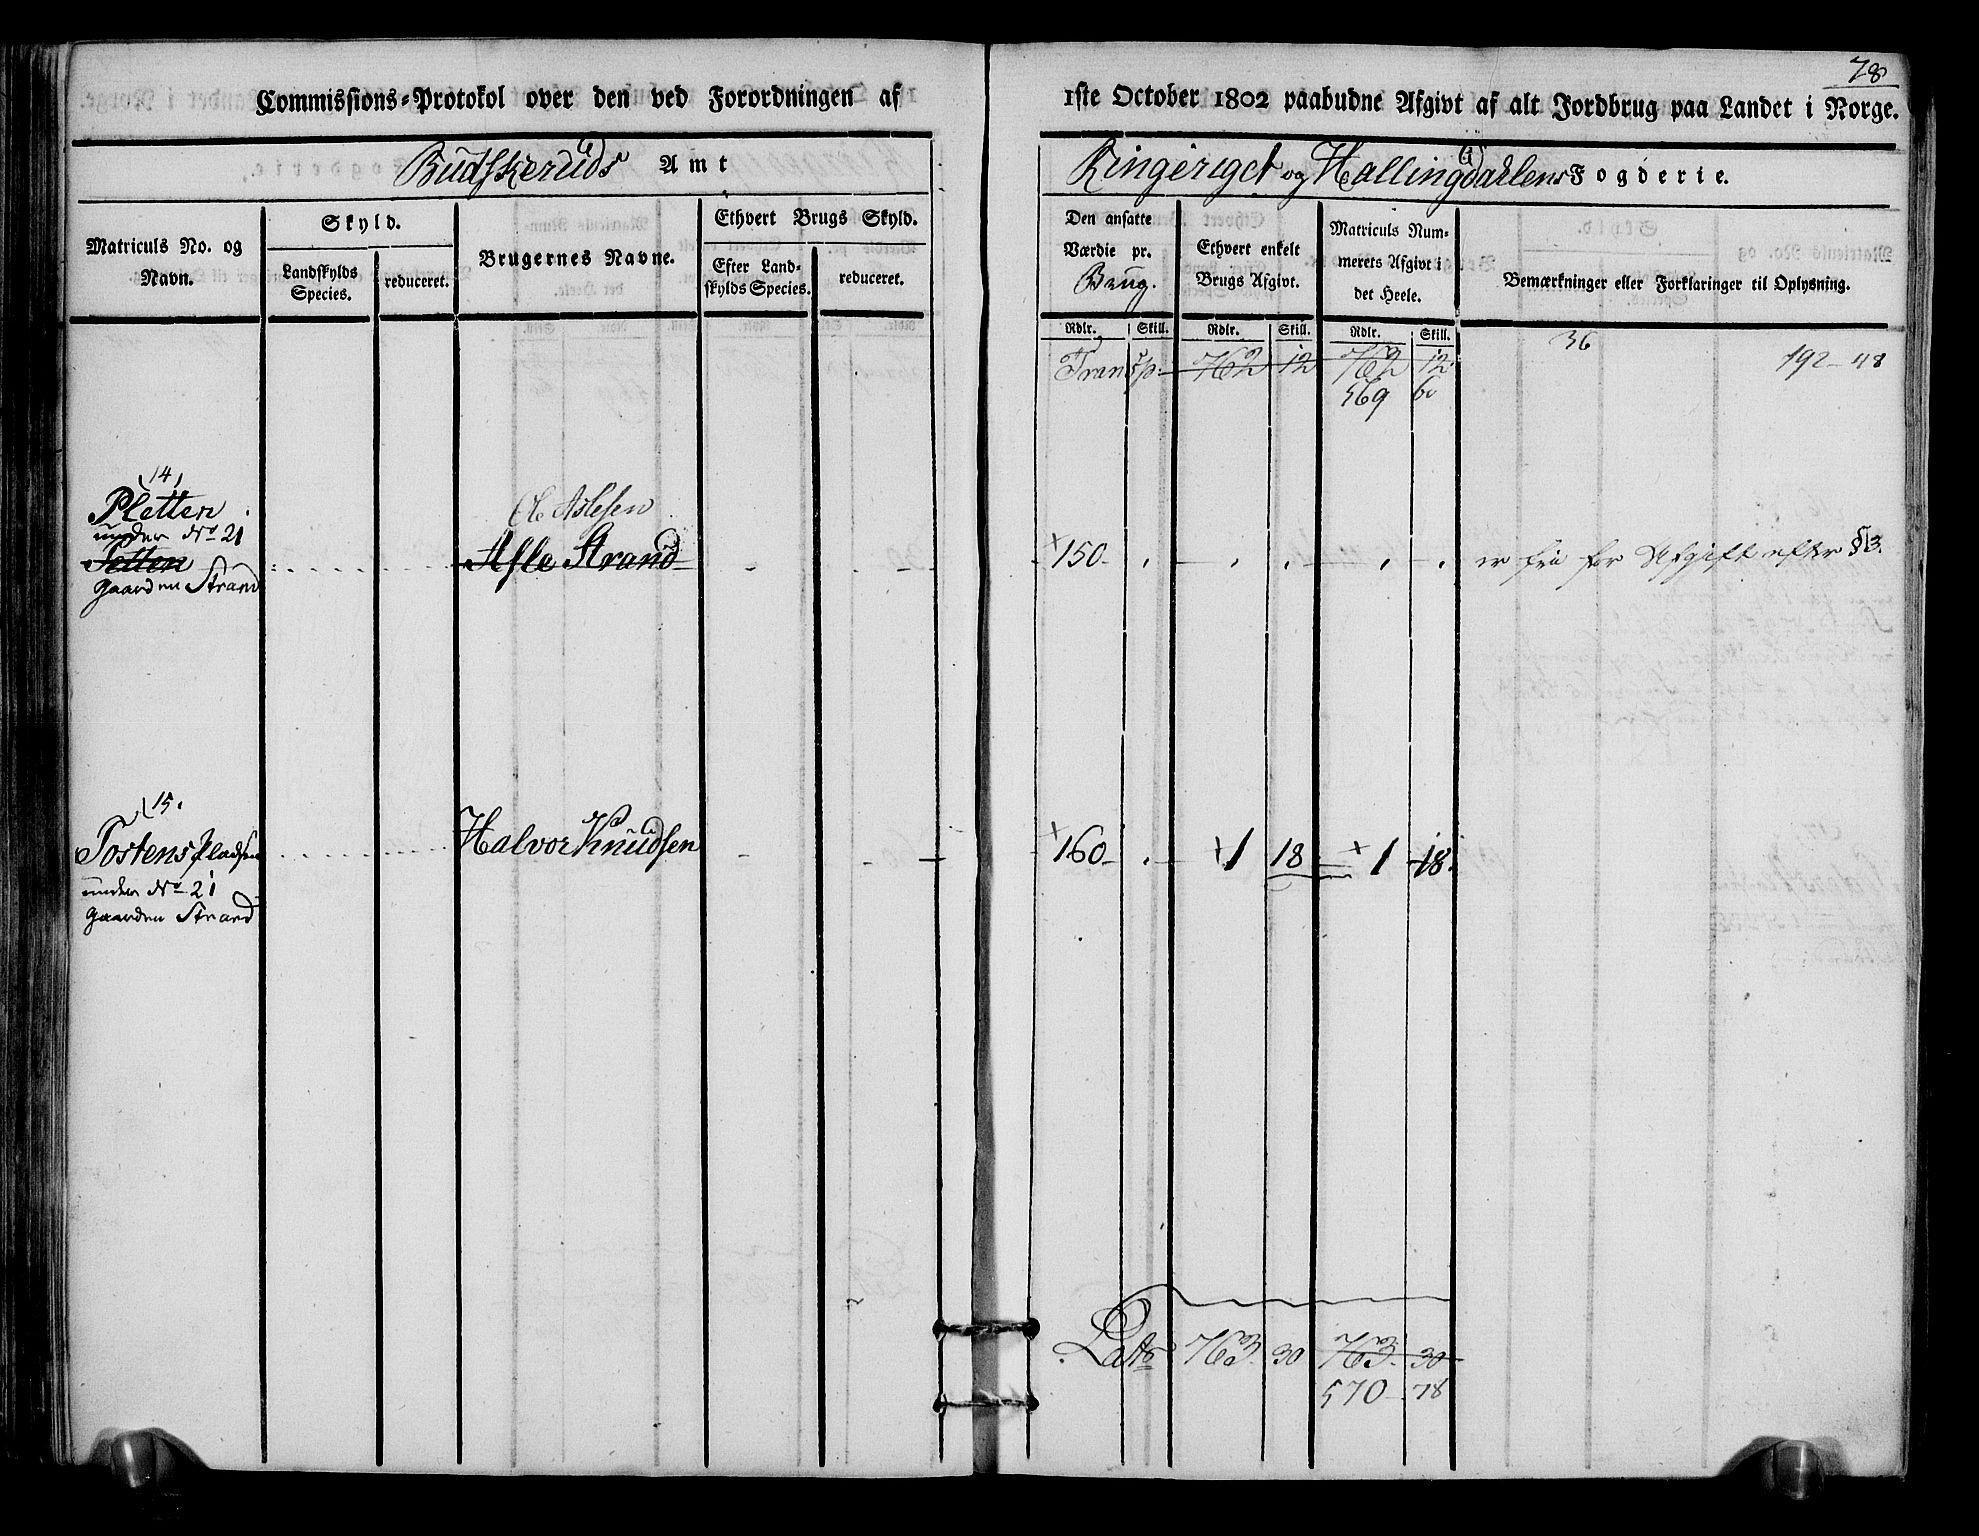 78
Commissions-Protokol over den ved Forordningen af 1ste October 1802 paabudne Afgivt af alt Jordbrug paa Landet i Norge.
Budskeruds Amt
Ringeriget og Hallingdahlens Fogderie.
Matriculs No. og Navn.
Skyld.
Landskylds Species.
reduceret.
Brugernes Navne.
Ethvert Brugs Skyld.
Efter Landskylds Species.
reduceret.
Den ansatte Værdie pr. Brug.
Ethvert enkelt Brugs Afgivt.
Matriculs Nummerets Afgivt i det Heele.
Bemærkninger eller Forklaringer til Oplysning.
Rdlr. Skill. Rdlr. Skill. Rdlr. Skill.
36
Transp: 762 12 762 12 192 - 48
569 60
14
Pletten
under No 21
Setten
gaarden Strand
Ole Aslesen
Asle Strand
150 er frie for Afgift efter § 3.
15.
Tostens Pladsen
under No 21
gaarden Strand
Halvor Knudsen
160 1 18 1 18.
Latus 763. 30 763. 30
570 - 78